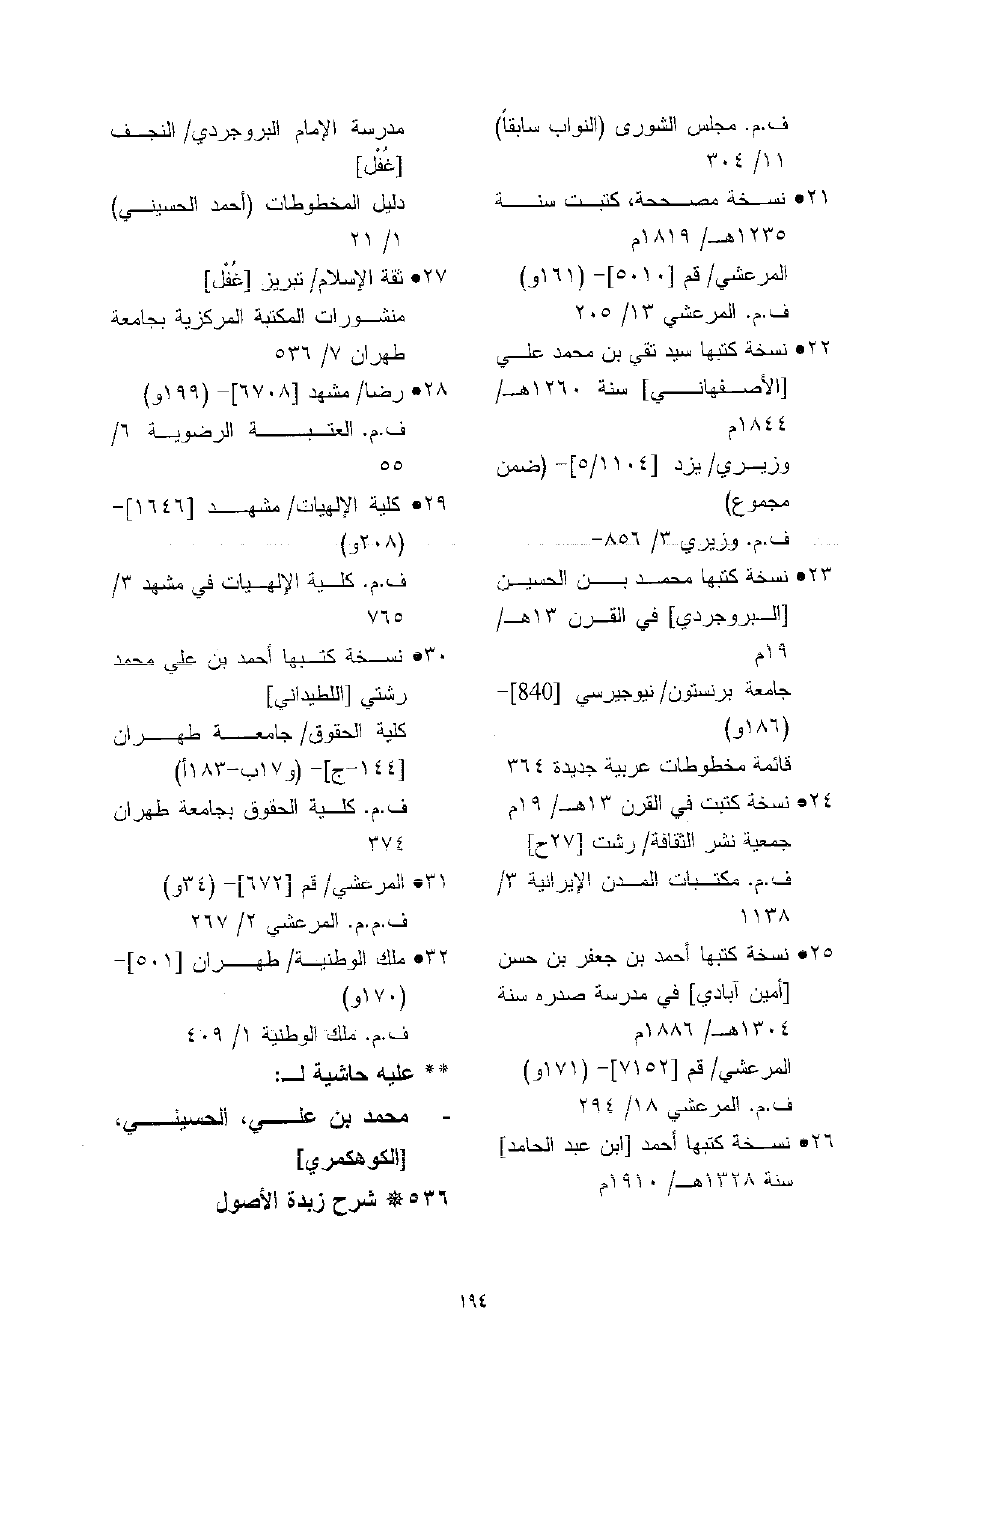 ف.م. مجلس الشورى (النواب سابقاً)
١١/ ٣٠٤
٢١• نسخة مصححة، كتبت سنة
١٢٣٥هـ/ ١٨١٩م
المرعشي/ قم [٥٠١٠]- (١٦١و)
ف.م. المرعشي ١٣/ ٢٠٥
٢٢• نسخة كتبها سيد تقي بن محمد علي
[الأصفهاني] سنة ١٢٦٠هـ/
١٨٤٤م
وزيري/ يزد [٥/١١٠٤]- (ضمن
مجموع)
ف.م. وزيري ٣/ ٨٥٦-
٢٣• نسخة كتبها محمد بن الحسين
[البروجردي] في القرن ١٣هـ/
١٩م
جامعة برنستون/ نيوجيرسي [840]-
(١٨٦و)
قائمة مخطوطات عربية جديدة ٣٦٤
٢٤• نسخة كتبت في القرن ١٣هـ/ ١٩م
جمعية نشر الثقافة/ رشت [٢٧ح]
ف.م. مكتبات المدن الإيرانية ٣/
١١٣٨
٢٥• نسخة كتبها أحمد بن جعفر بن حسن
[أمين آبادي] في مدرسة صدره سنة
١٣٠٤هـ/ ١٨٨٦م
المرعشي/ قم [٧١٥٢]- (١٧١و)
ف.م. المرعشي ١٨/ ٢٩٤
٢٦• نسخة كتبها أحمد [ابن عبد الحامد]
سنة ١٣٢٨هـ/ ١٩١٠م
مدرسة الإمام البروجردي/ النجف
[غُفْل]
دليل المخطوطات (أحمد الحسيني)
١/ ٢١
٢٧• ثقة الإسلام/ تبريز [غُفْل]
منشورات المكتبة المركزية بجامعة
طهران ٧/ ٥٣٦
٢٨• رضا/ مشهد [٦٧٠٨]- (١٩٩و)
ف.م. العتبة الرضوية ٦/
٥٥
٢٩• كلية الإلهيات/ مشهد [١٦٤٦]-
(٢٠٨و)
ف.م. كلية الإلهيات في مشهد ٣/
٧٦٥
٣٠• نسخة كتبها أحمد بن علي محمد
رشتي [اللطيداني]
كلية الحقوق/ جامعة طهران
[١٤٤-ج]- (و١٧ب-١٨٣أ)
ف.م. كلية الحقوق بجامعة طهران
٣٧٤
٣١• المرعشي/ قم [٦٧٢]- (٣٤و)
ف.م.م. المرعشي ٢/ ٢٦٧
٣٢• ملك الوطنية/ طهران [٥٠١]-
(١٧٠و)
ف.م. ملك الوطنية ١/ ٤٠٩
** عليه حاشية لـ:
- محمد بن علي، الحسيني،
[الكوهكمري]
٥٣٦* شرح زبدة الأصول
١٩٤